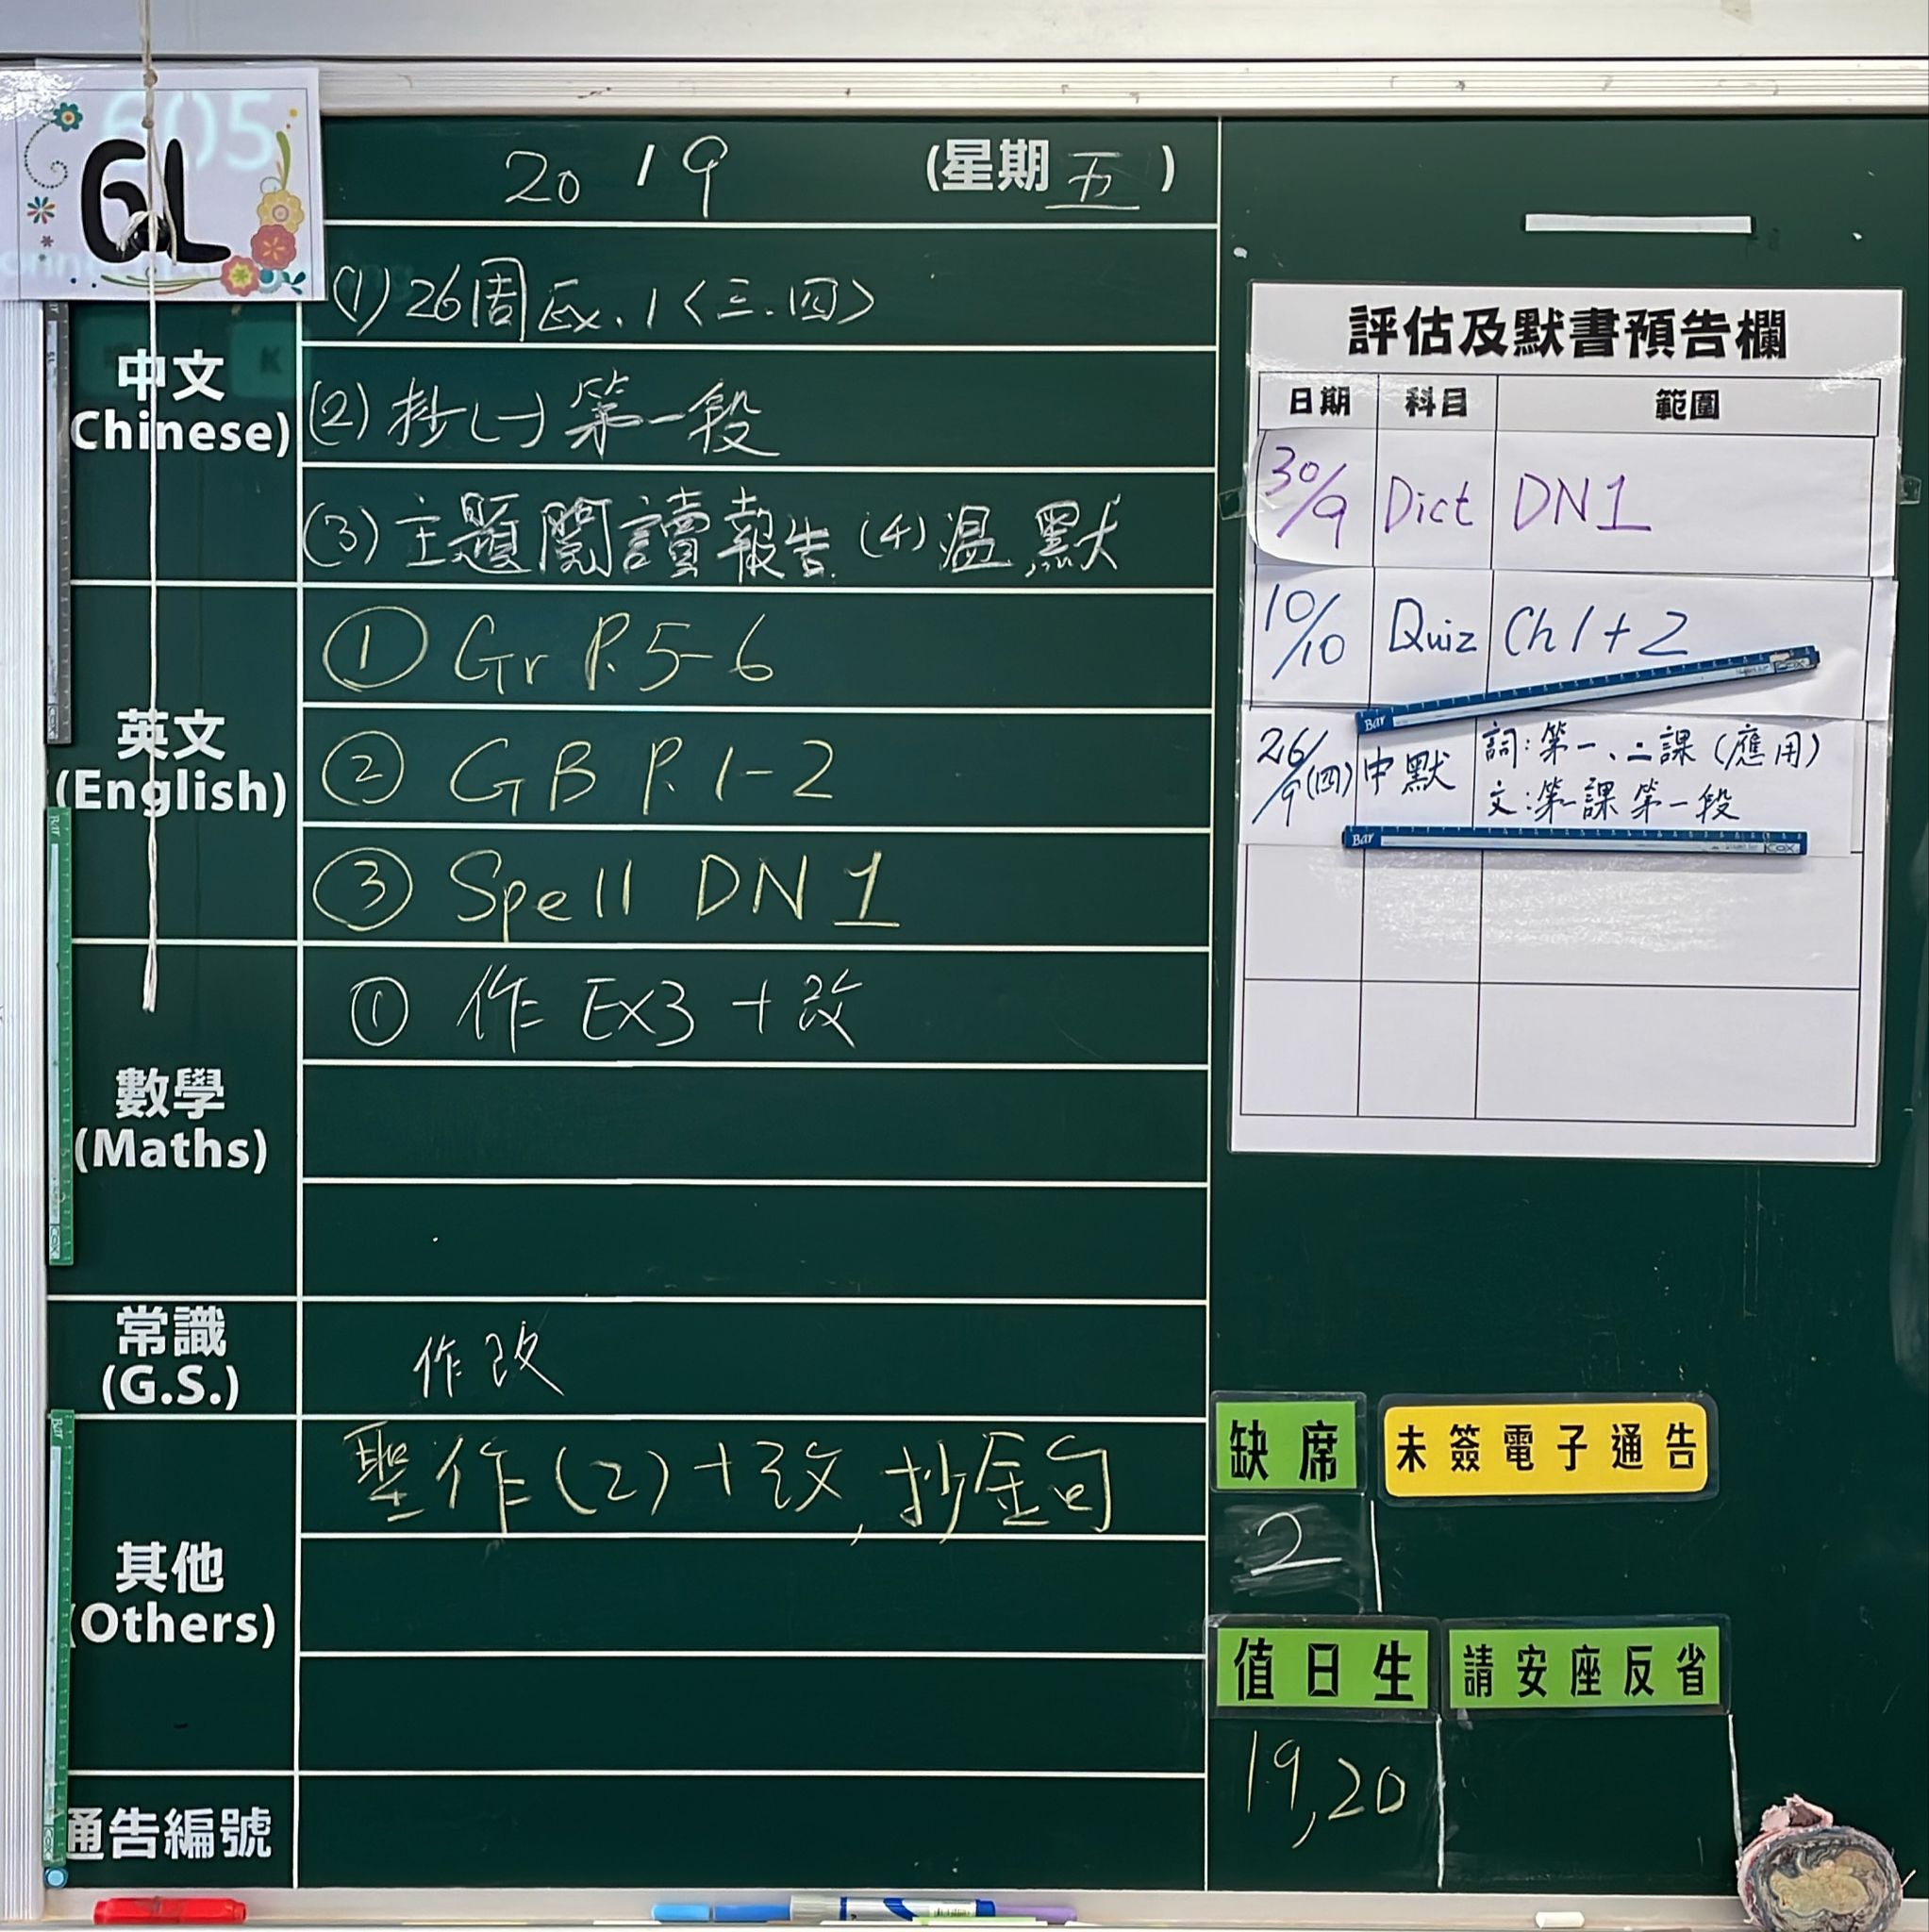 6L
20/9 (星期五)
中文
(Chinese)
(1) 26周 Ex.1〈三.四〉
(2) 抄(一)第一段
(3) 主題閱讀報告 (4) 溫默
英文
(English)
① Gr P.5-6
② GB P.1-2
③ Spell DN 1
數學
(Maths)
① 作 Ex3 + 改
常識
(G.S.)
作改
其他
(Others)
聖作(2)+改, 抄金句
通告編號
評估及默書預告欄
日期 科目 範圍
30/9 Dict DN1
10/10 Quiz Ch 1+2
26/9(四) 中默 詞:第一、二課(應用)
文:第一課第一段
缺席 未簽電子通告
2
值日生 請安座反省
19,20